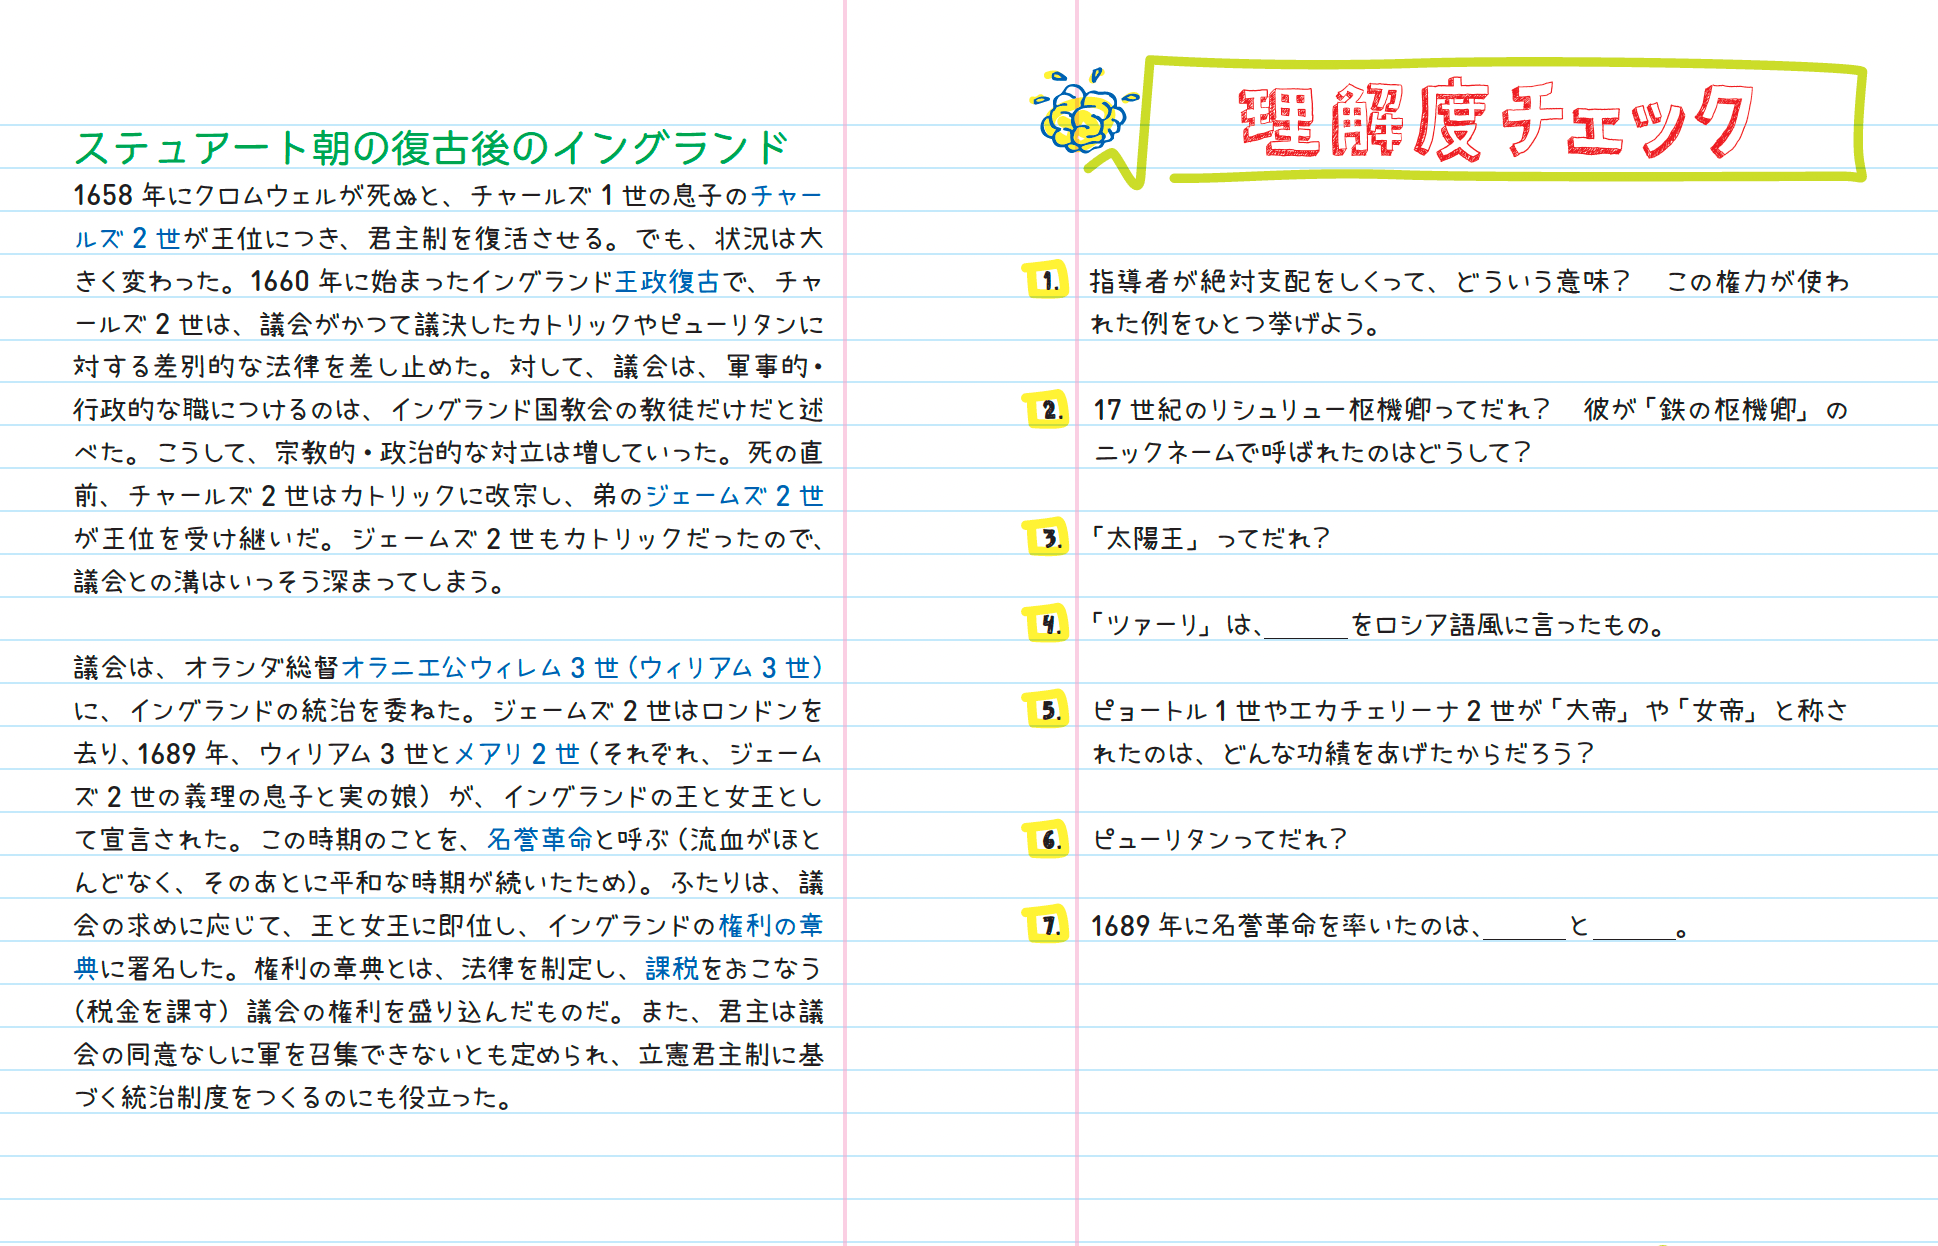 ステュアート朝の復古後のイングランド
1658 年にクロムウェルが死ぬと、チャールズ 1 世の息子のチャー
ルズ 2 世が王位につき、君主制を復活させる。でも、状況は大
きく変わった。1660 年に始まったイングランド王政復古で、チャ
ールズ 2 世は、議会がかつて議決したカトリックやピューリタンに
対する差別的な法律を差し止めた。対して、議会は、軍事的・
行政的な職につけるのは、イングランド国教会の教徒だけだと述
べた。こうして、宗教的・政治的な対立は増していった。死の直
前、チャールズ 2 世はカトリックに改宗し、弟のジェームズ 2 世
が王位を受け継いだ。ジェームズ 2 世もカトリックだったので、
議会との溝はいっそう深まってしまう。
議会は、オランダ総督オラニエ公ウィレム 3 世（ウィリアム 3 世）
に、イングランドの統治を委ねた。ジェームズ 2 世はロンドンを
去り、1689 年、ウィリアム 3 世とメアリ 2 世（それぞれ、ジェーム
ズ 2 世の義理の息子と実の娘）が、イングランドの王と女王とし
て宣言された。この時期のことを、名誉革命と呼ぶ（流血がほと
んどなく、そのあとに平和な時期が続いたため）。ふたりは、議
会の求めに応じて、王と女王に即位し、イングランドの権利の章
典に署名した。権利の章典とは、法律を制定し、課税をおこなう
（税金を課す）議会の権利を盛り込んだものだ。また、君主は議
会の同意なしに軍を召集できないとも定められ、立憲君主制に基
づく統治制度をつくるのにも役立った。
理解度チェック
1. 指導者が絶対支配をしくって、どういう意味？　この権力が使わ
れた例をひとつ挙げよう。
2. 17 世紀のリシュリュー枢機卿ってだれ？　彼が「鉄の枢機卿」の
ニックネームで呼ばれたのはどうして？
3. 「太陽王」ってだれ？
4. 「ツァーリ」は、______をロシア語風に言ったもの。
5. ピョートル 1 世やエカチェリーナ 2 世が「大帝」や「女帝」と称さ
れたのは、どんな功績をあげたからだろう？
6. ピューリタンってだれ？
7. 1689 年に名誉革命を率いたのは、______と______。